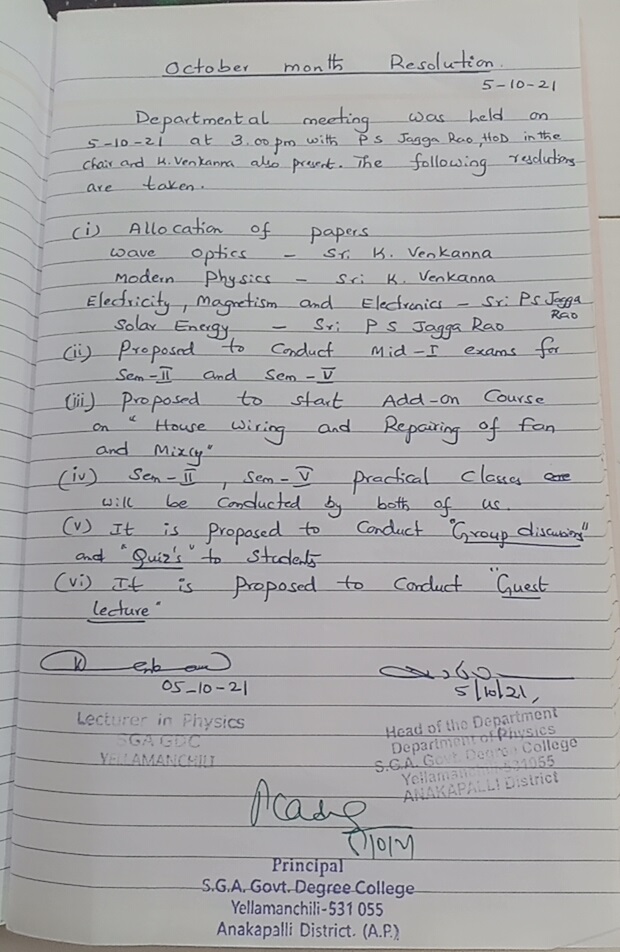 October month Resolution.
5-10-21
Departmental meeting was held on
5-10-21 at 3.00pm with P S Jagga Rao, HOD in the
chair and K. Venkanna also present. The following resolutions
are taken.
(i) Allocation of papers
Wave Optics - Sri K. Venkanna
Modern Physics - Sri K. Venkanna
Electricity, Magnetism and Electronics - Sri P S Jagga
Rao
Solar Energy - Sri P S Jagga Rao
(ii) Proposed to Conduct Mid-I exams for
Sem-II and Sem-V
(iii) Proposed to start Add-on Course
on "House Wiring and Repairing of Fan
and Mixcy"
(iv) Sem-II, Sem-V practical classes are
will be conducted by both of us.
(v) It is proposed to Conduct "Group discussions"
and "Quiz's" to Students
(vi) It is proposed to Conduct "Guest
lecture"
05-10-21
5/10/21,
Lecturer in Physics
SGA GDC
YELLAMANCHILI
Head of the Department
Department of Physics
S.G.A. Govt. Degree College
Yellamanchili-531055
ANAKAPALLI District
Principal
S.G.A. Govt. Degree College
Yellamanchili-531 055
Anakapalli District. (A.P.)